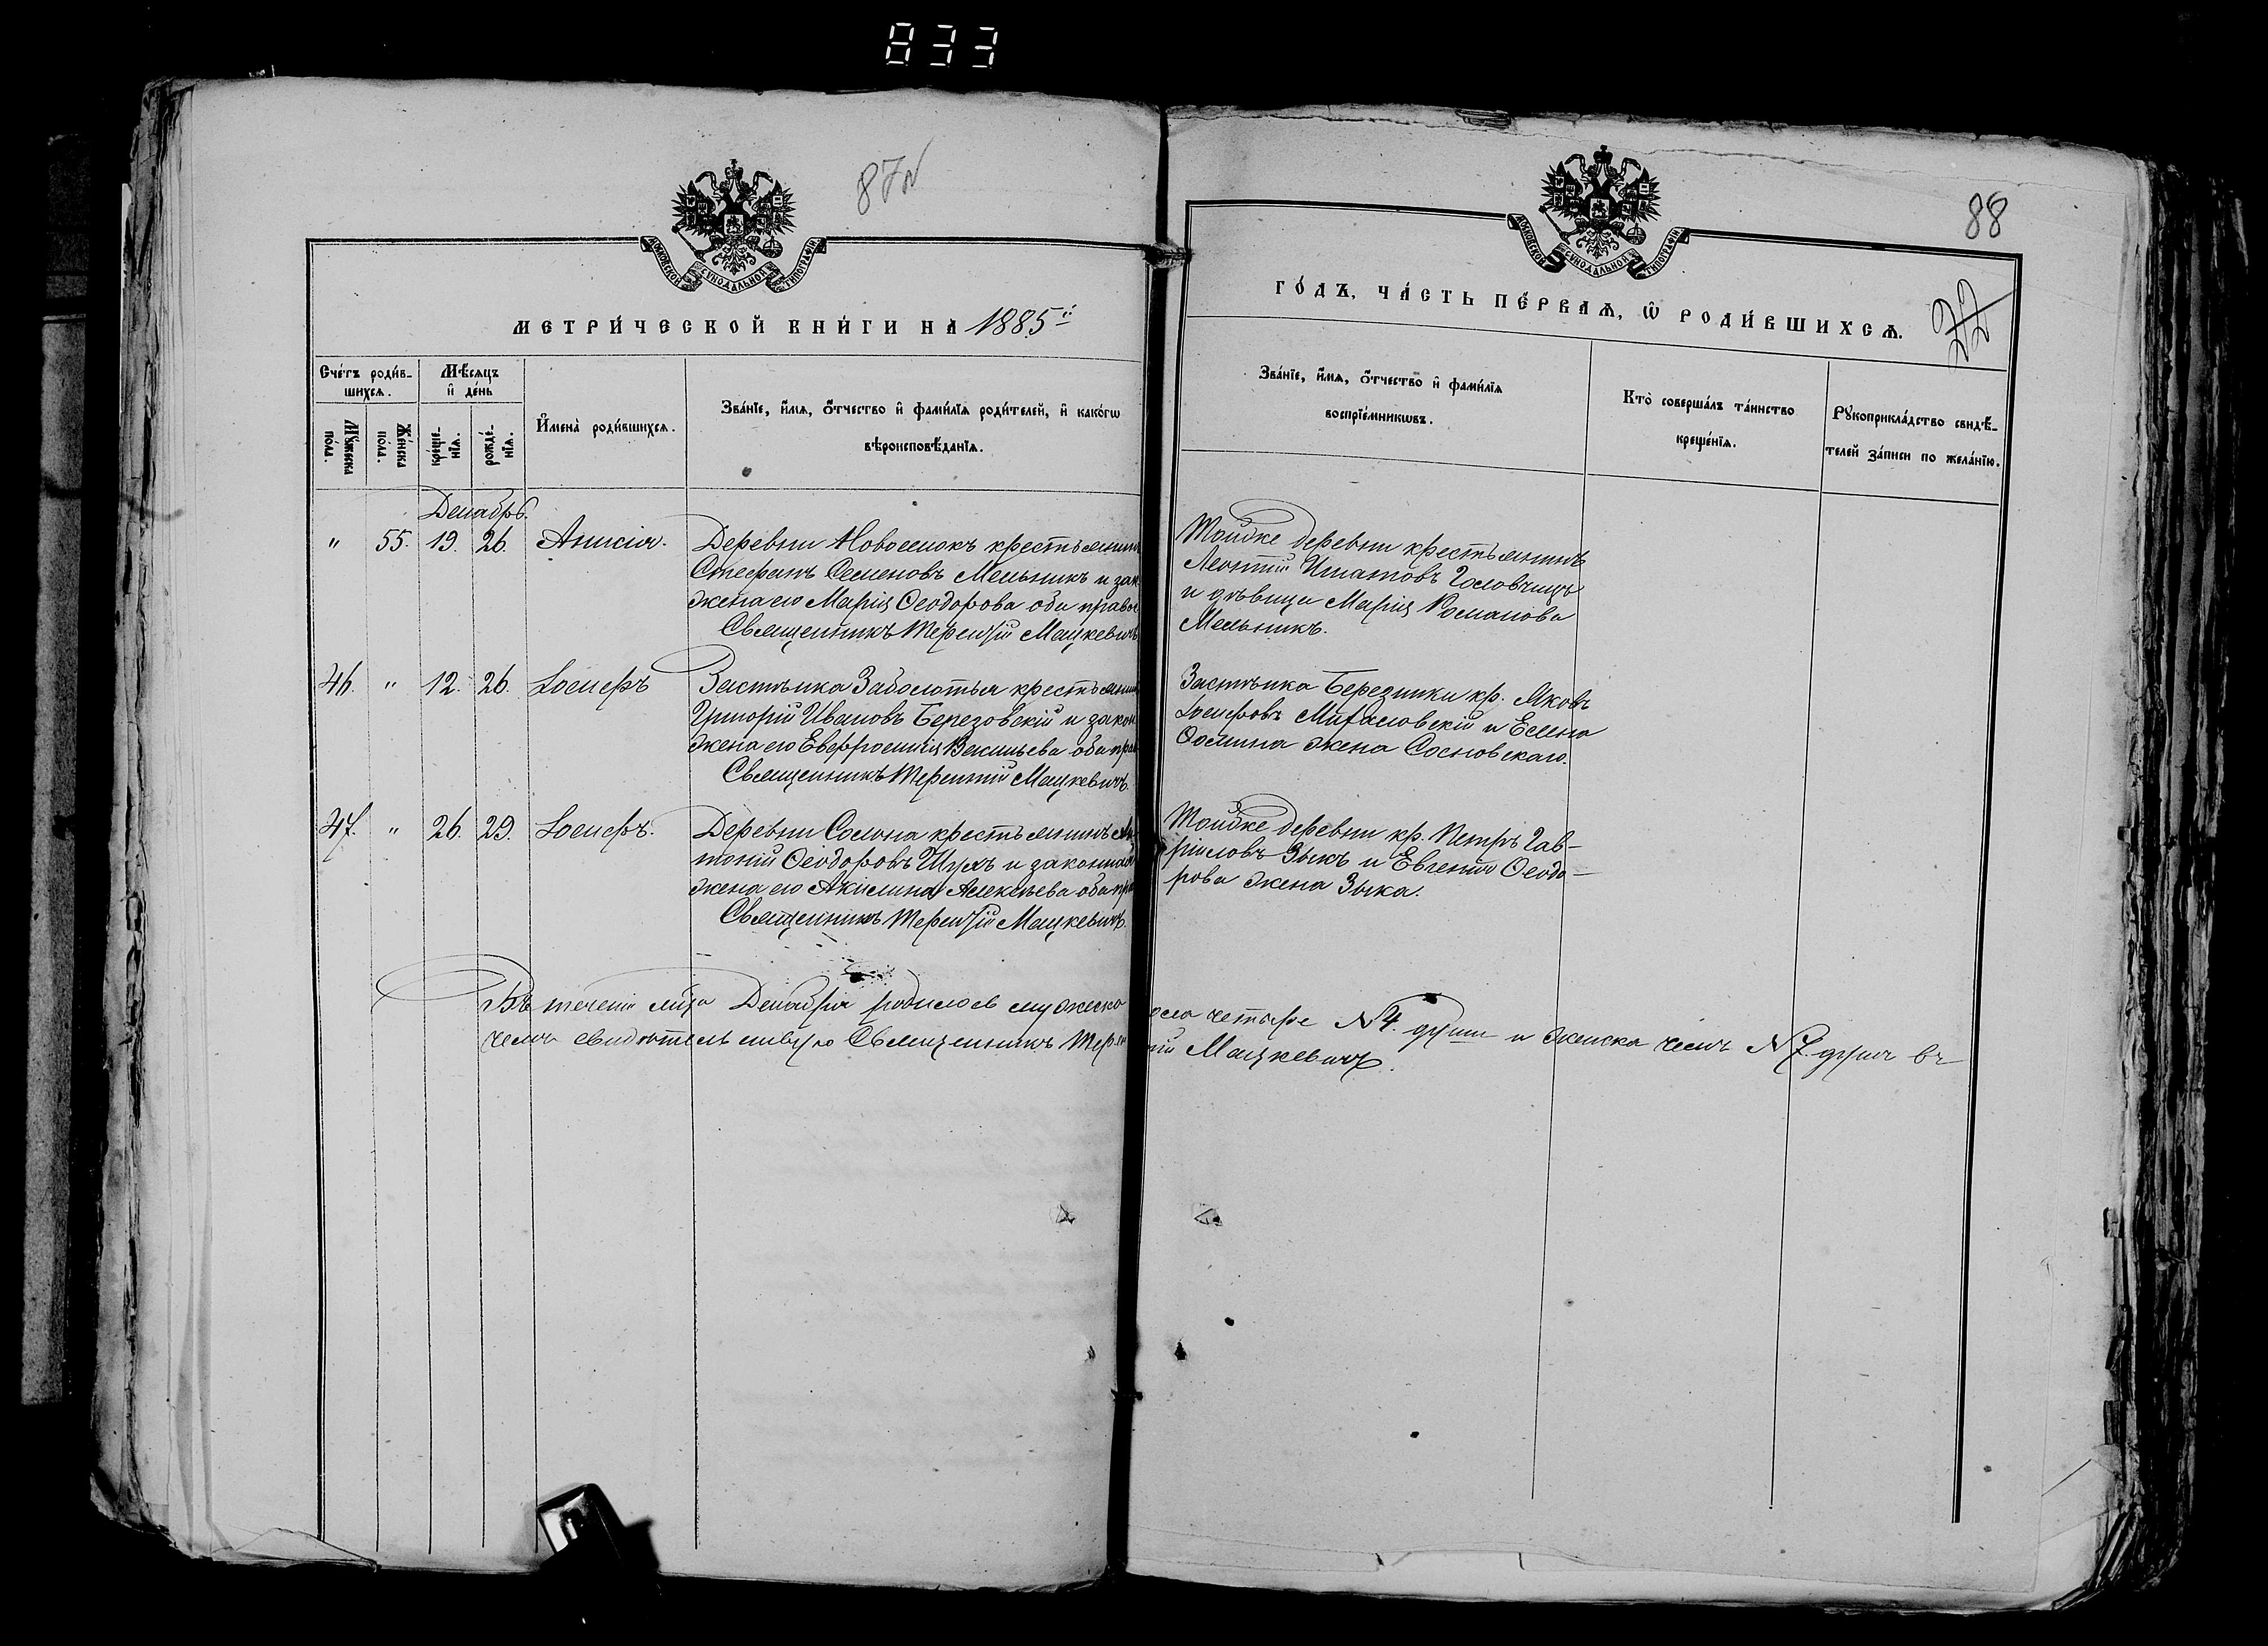 833
87
88
МОСКОВСКОЙ СѴНОДАЛЬНОЙ ТИПОГРАФІИ
МОСКОВСКОЙ СѴНОДАЛЬНОЙ ТИПОГРАФІИ
МЕТРИ́ЧЕСКОЙ КНИ́ГИ НА 1885й
ГО́ДЪ, ЧА́СТЬ ПЕ́РВАѦ, Ѡ҆ РОДИ́ВШИХСѦ.
22
Сче́тъ роди́в-
шихсѧ.
Мѣ́сѧцъ
и҆ де́нь
Му́жеска
пола.
Же́нска
пола.
креще́-
нїѧ.
рожде́-
нїѧ.
И҆мена̀ роди́вшихсѧ.
Зва́нїе, и҆́мѧ, ѻ҆́тчество и҆ фами́лїѧ роди́телей, и҆ како́гѡ
вѣроисповѣ́данїѧ.
Зва́нїе, и҆́мѧ, ѻ҆́тчество и҆ фами́лїѧ
воспрїе́мникѡвъ.
Кто̀ соверша́лъ та́инство
креще́нїѧ.
Рꙋкоприкла́дство свидѣ́-
телей за́писи по жела́нїю.
Декабрь.
" 55. 19. 26. Анисія. Деревни Новоселокъ крестьянинъ
Стефанъ Семеновъ Мельникъ и зак
жена его Марія Ѳеодорова оба право
Священникъ Терентій Мацкевичъ
Тойже деревни крестьянинъ
Леонтій Игнатовъ Головчицъ
и дѣвица Марія Романова
Мельникъ.
46. " 12. 26. Іосифъ Застѣнка Заболотья крестьянинъ
Григорій Ивановъ Березовскій и закон
жена его Евфросинія Васильева оба прав
Священникъ Терентій Мацкевичъ.
Застѣнка Березинки кр. Яковъ
Іосифовъ Михаловскій и Елена
Ѳомина жена Сосновскаго.
47. " 26. 29. Іосифъ. Деревни Солона крестьянинъ Ан
тоній Ѳеодоровъ Шумъ и законная
жена его Акилина Алексѣева оба пра
Священникъ Терентій Мацкевичъ.
Тойже деревни кр. Петръ Гав-
ріиловъ Зыкъ и Евгенія Ѳеодо-
рова жена Зыка.
Въ теченіи мѣсца Декабря родилось мужеска пола четыре N 4. души и женска N 7. душъ въ
чемъ свидѣтельствую Священникъ Терентій Мацкевичъ.